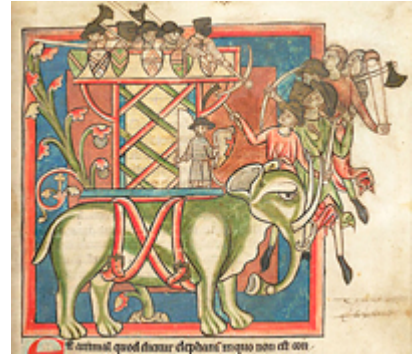 Est animal quod dicitur elephans in quo non est con